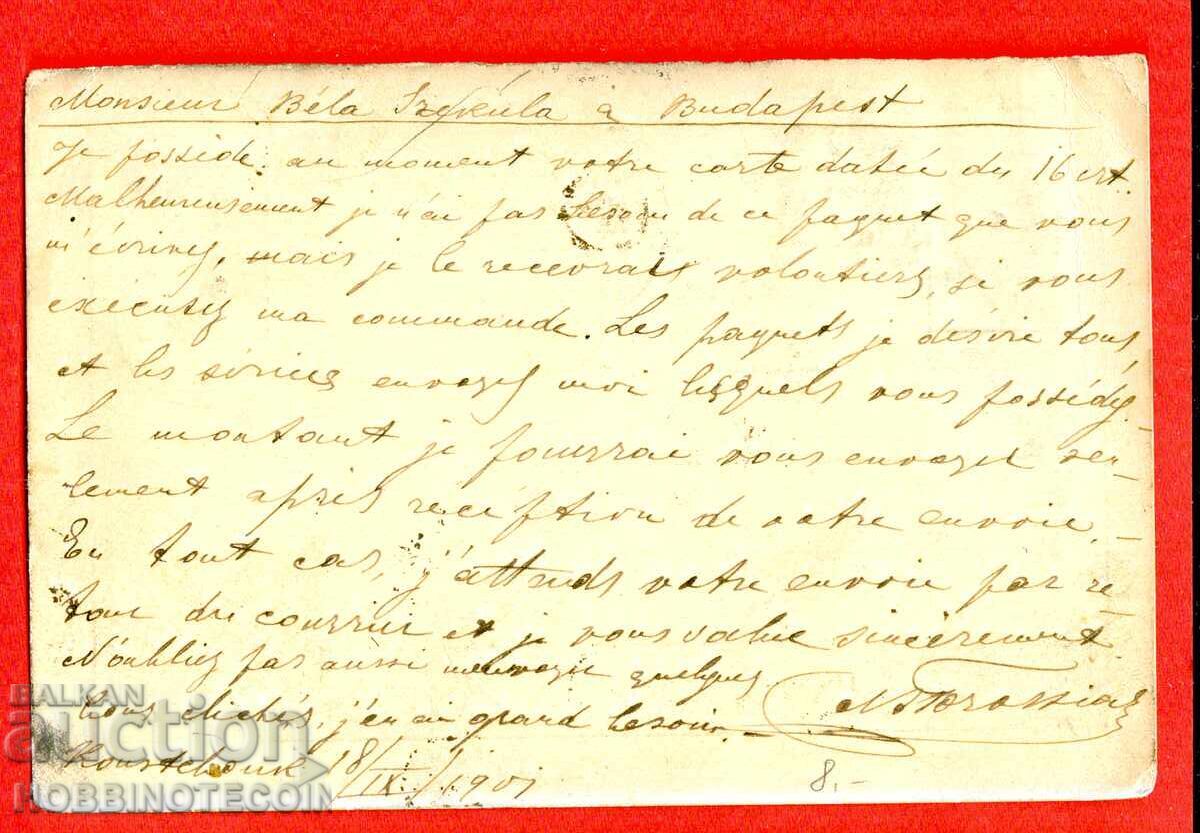 Monsieur Béla Szekula à Budapest
Je possède au moment votre carte datée du 16 crt.
Malheureusement je n'ai pas besoin de ce paquet que vous
m'écrivez, mais je le recevrais volontiers, si vous
exécutez ma commande. Les paquets je désire tous
et les séries envoyez moi lesquels vous possédez.
Le montant je pourrai vous envoyer seu-
lement après réception de votre envoie. -
En tout cas, j'attends votre envoie par re-
tour du courrier et je vous salue sincèrement
N'oubliez pas aussi m'envoyer quelques
bons clichés, j'en ai grand besoin.
Roustchouk 18/IX/1901
8.-
BALKAN
auction
HOBBINOTECOIN